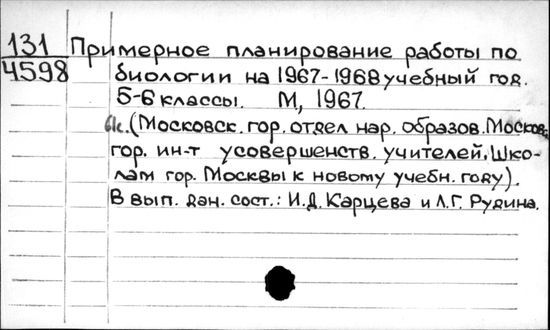 131 Примерное планирование работы по
4598 биологии на 1967-1968 учебный год.
5-6 классы. М, 1967.
(Московск. гор. отдел нар. образов. Москов.
гор. ин-т усовершенств. учителей. Шко-
лам гор. Москвы к новому учебн. году).
В вып. дан. сост.: И.Д. Карцева и Л.Г. Рудина.